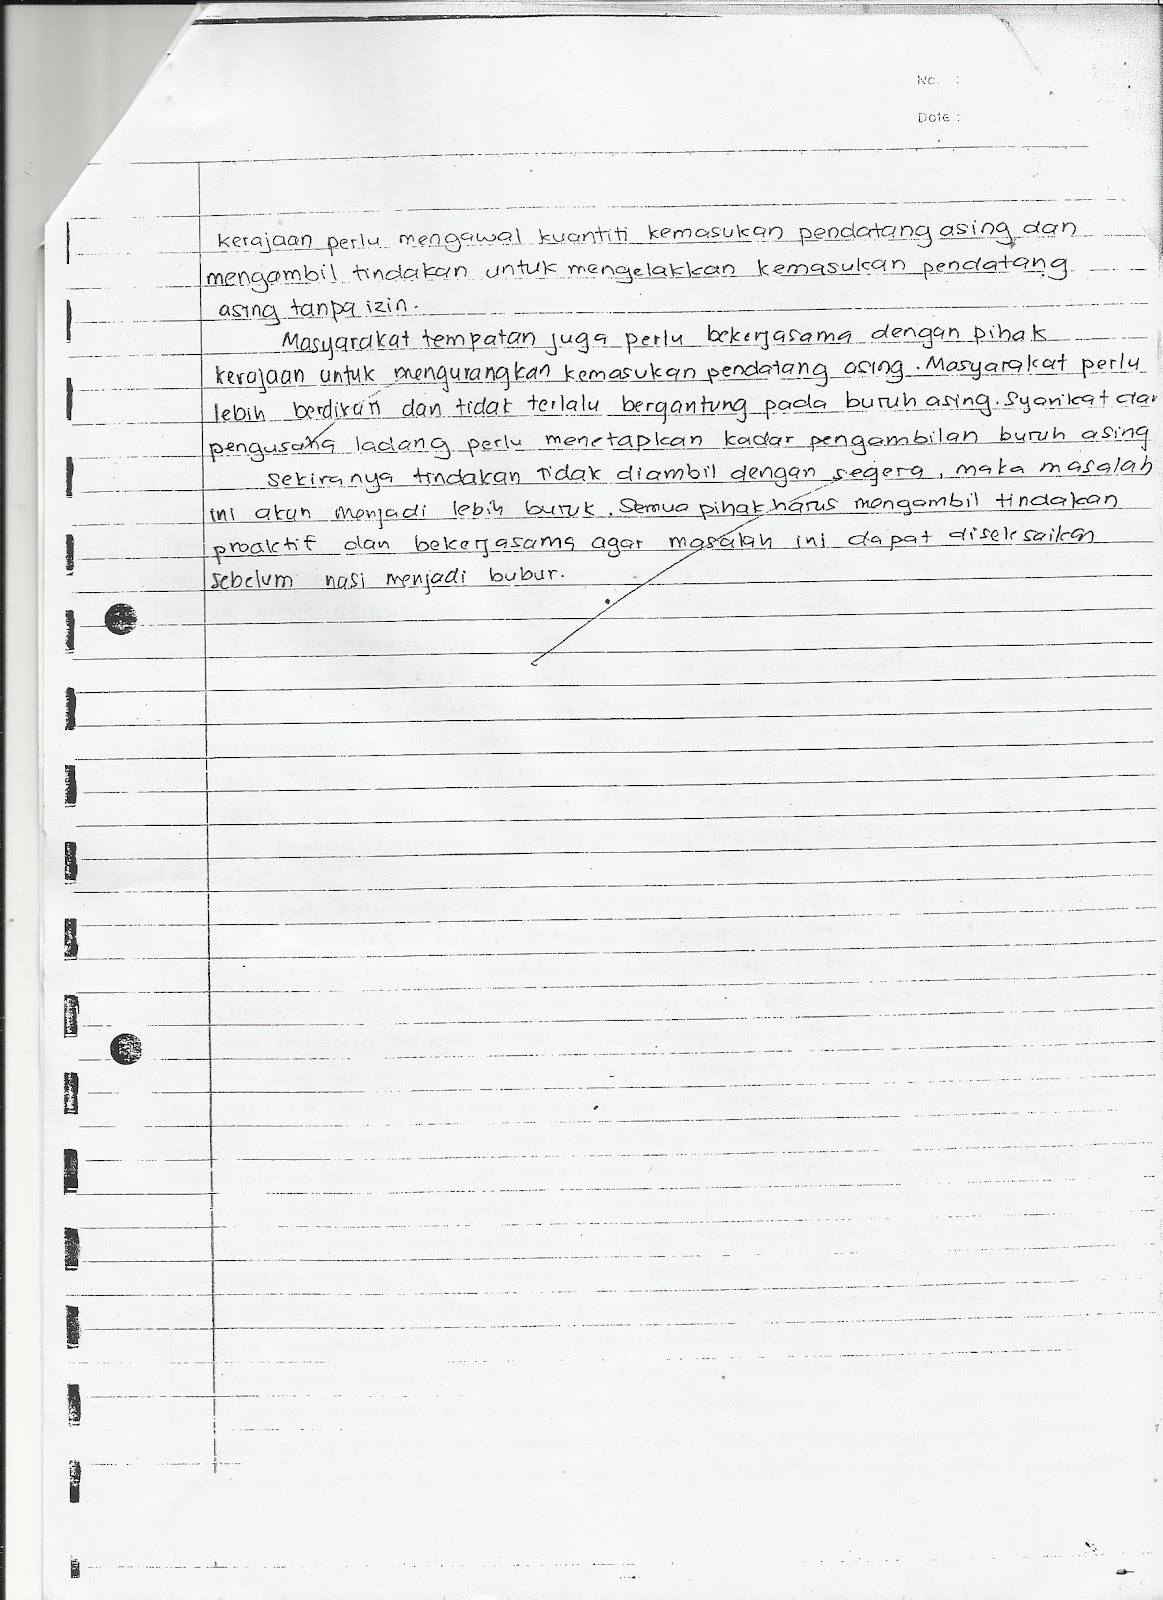 No. :
Date :
kerajaan perlu mengawal kuantiti kemasukan pendatang asing dan
mengambil tindakan untuk mengelakkan kemasukan pendatang
asing tanpa izin.
Masyarakat tempatan juga perlu bekerjasama dengan pihak
kerajaan untuk mengurangkan kemasukan pendatang asing. Masyarakat perlu
lebih berdikari dan tidak terlalu bergantung pada buruh asing. Syarikat dan
pengusaha ladang perlu menetapkan kadar pengambilan buruh asing
Sekiranya tindakan tidak diambil dengan segera, maka masalah
ini akan menjadi lebih buruk. Semua pihak harus mengambil tindakan
proaktif dan bekerjasama agar masalah ini dapat diselesaikan
sebelum nasi menjadi bubur.